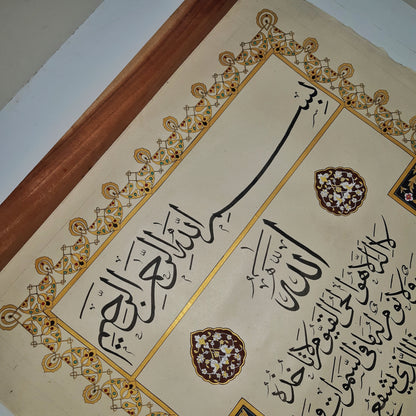 بسم الله الرحمن الرحيم
الله
لا إله إلا هو الحي القيوم لا تأخذه
ولا نوم له ما في السموات
الذي يشفع